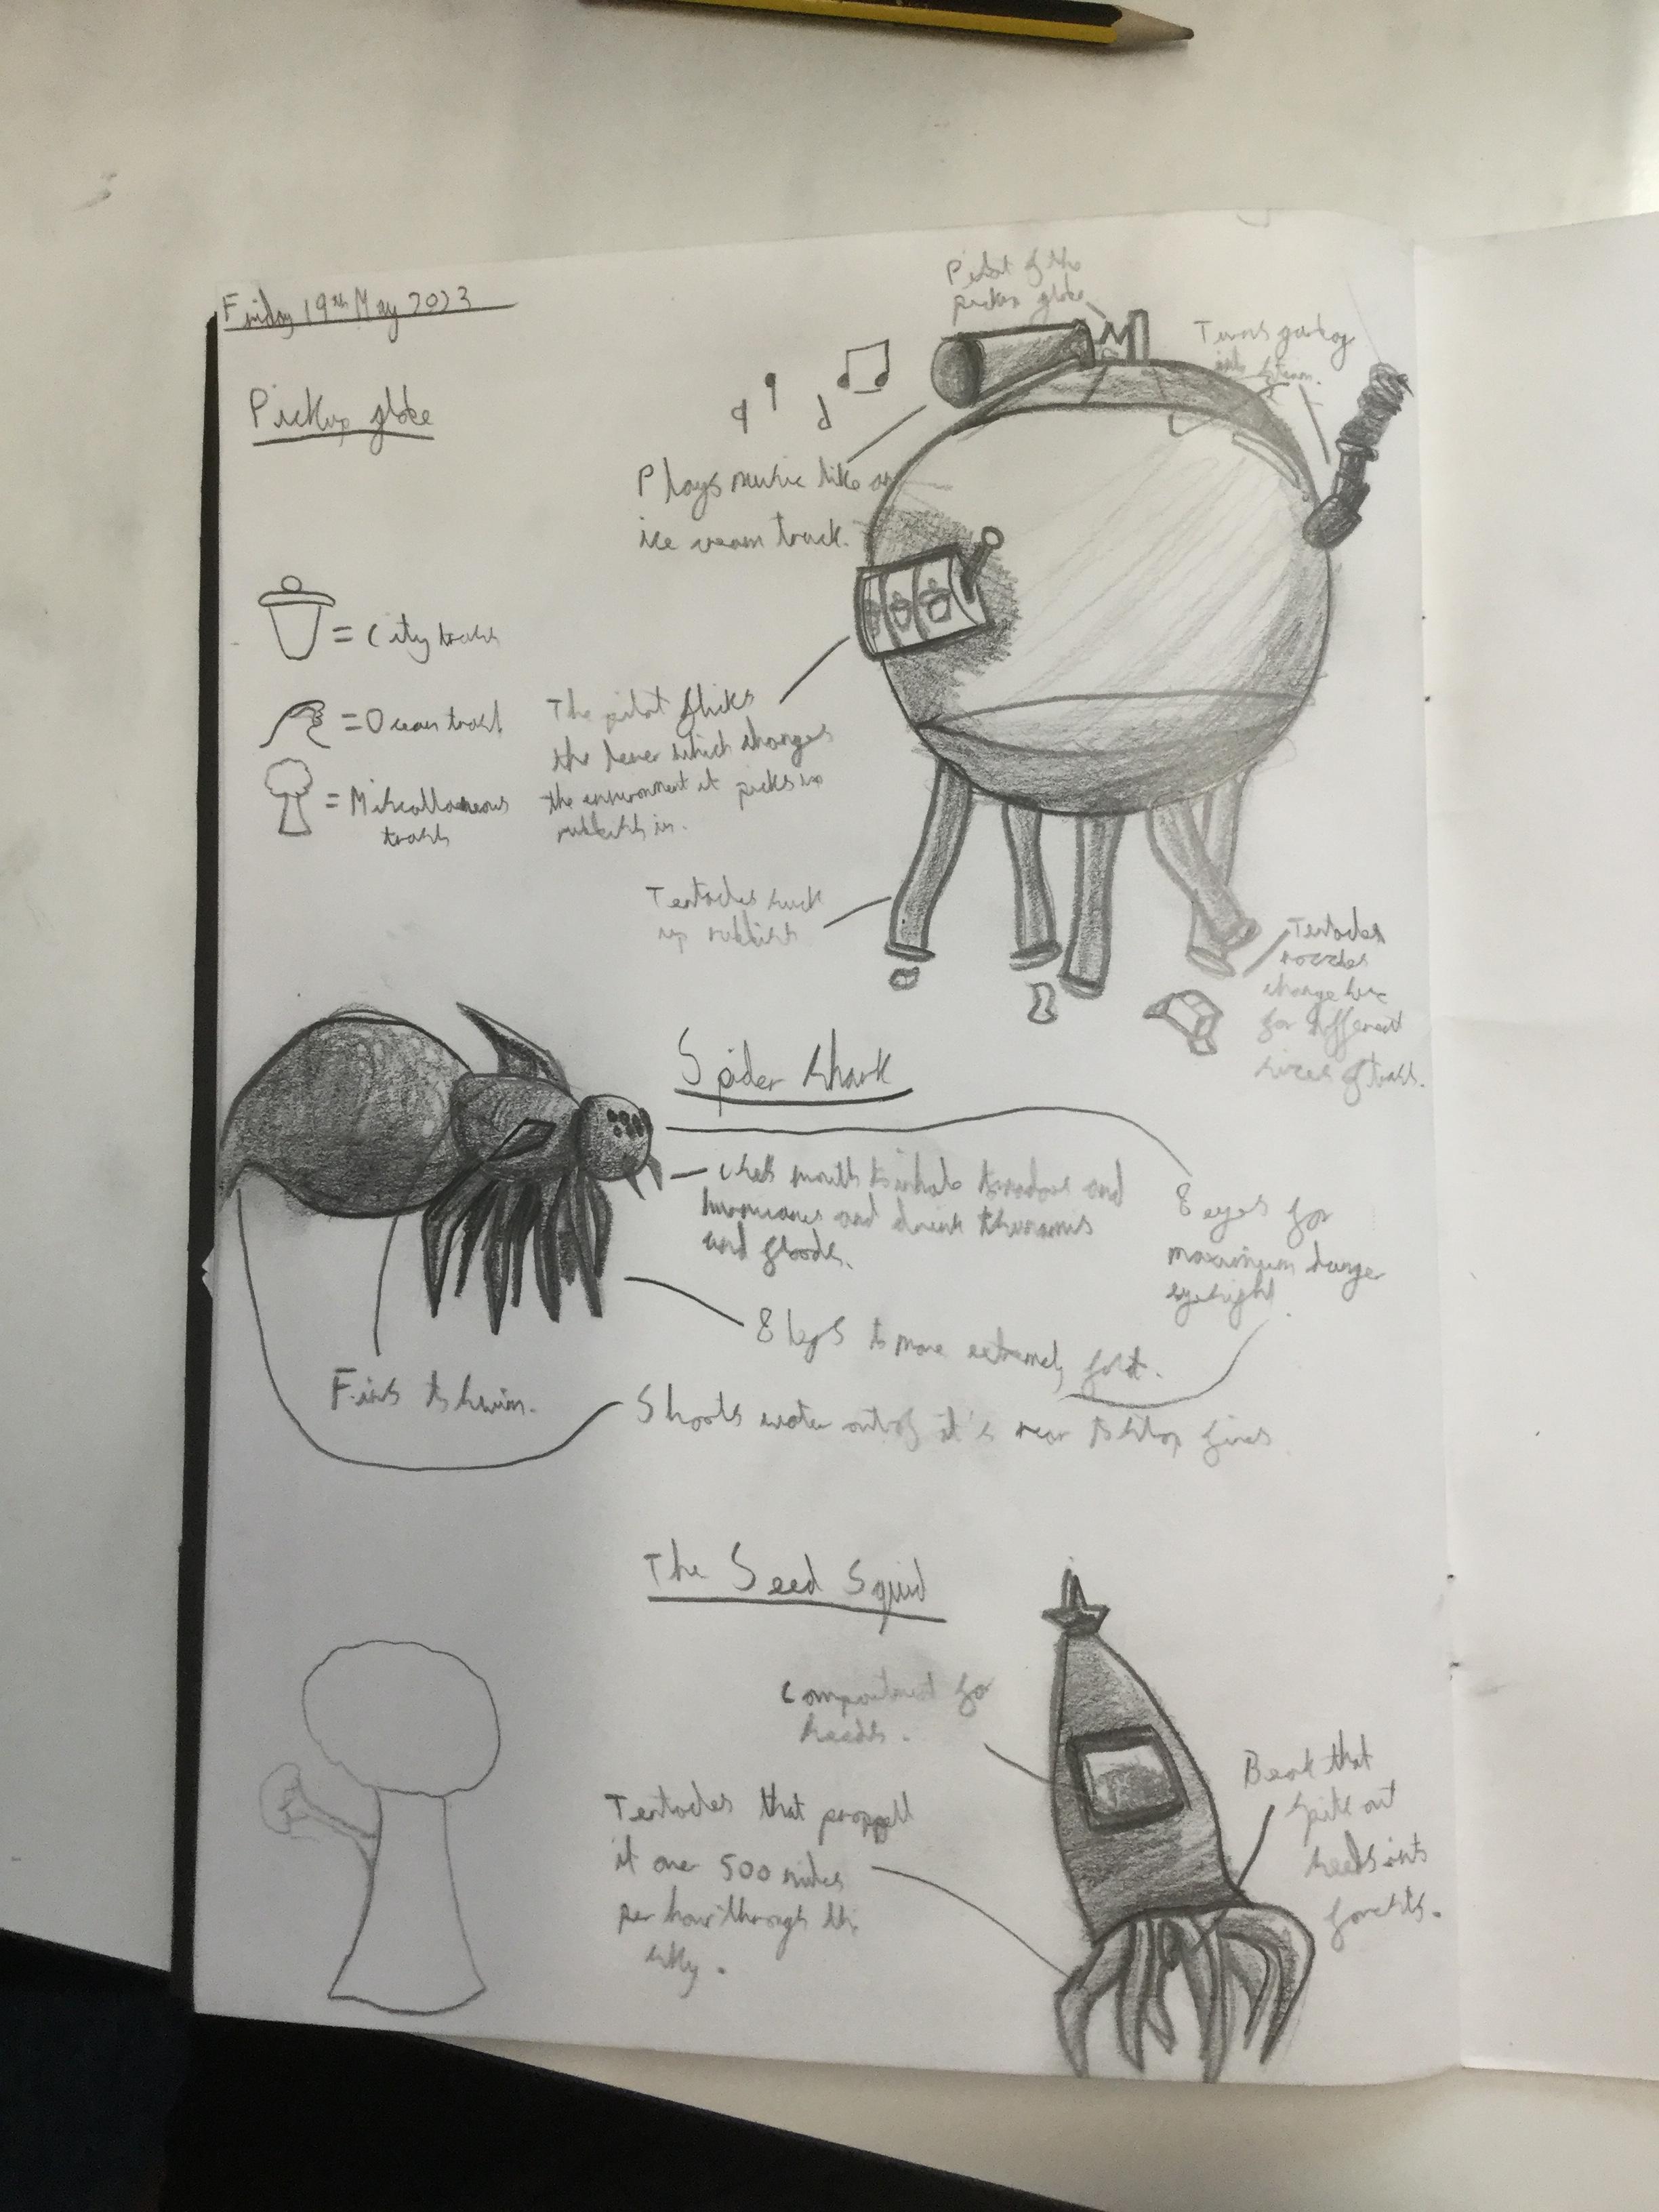 Friday 19th May 2023
Pickup globe
Pilot of the
pickup globe
Turns garbage
into steam.
Plays music like an
ice cream truck.
= City trash
= Ocean trash
= Miscallaneous
trash
The pilot fliks
the lever which changes
the environment it picks up
rubbish in.
Tentacles suck
up rubbish
Tentacles
nozzles
change size
for different
sizes of trash.
Spider shark
mouth to inhale tornadoes and
hurricanes and drink thunamis
and floods.
8 eyes for
maximum range
eyesight.
8 legs to move extremely fast.
Fins to swim.
Shoots water out of it's rear to stop fires
The Seed Squid
Compartment for
seeds.
Tentacles that propell
it over 500 miles
per hour through the
sky.
Beak that
spits out
seeds into
forests.